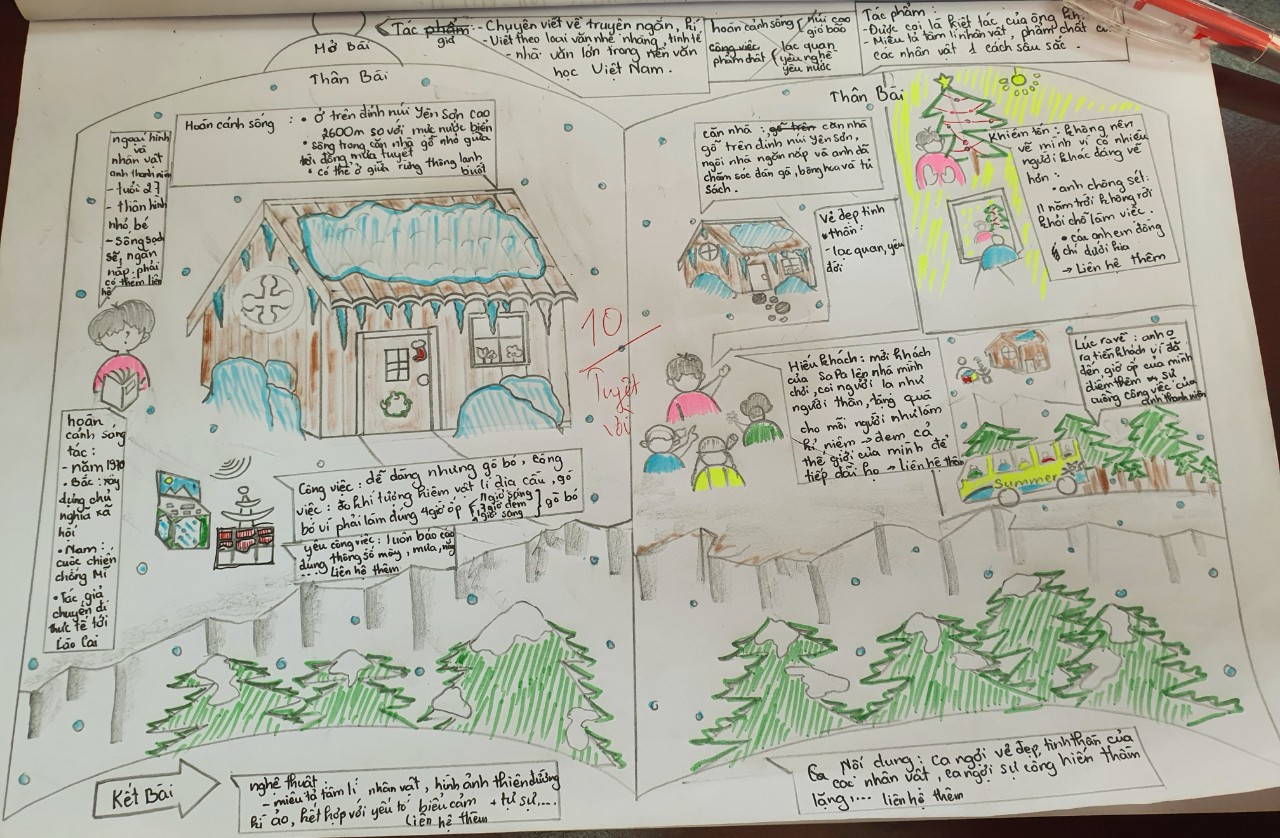 Mở Bài
Tác phẩm
giả
- Chuyên viết về truyện ngắn, kí
- Viết theo loại văn nhẹ nhàng, tinh tế
- nhà văn lớn trong nền văn
học Việt Nam.
hoàn cảnh sống
núi cao
gió bão
công việc
phẩm chất
lạc quan
yêu nghề
yêu nước
Tác phẩm:
- Được coi là kiệt tác, của ông
- Miêu tả tâm lí nhân vật, phẩm chất
các nhân vật 1 cách sâu sắc.
Thân Bài
ngoại hình
và
nhân vật
anh thanh niên
- tuổi 27
- thân hình
nhỏ bé
- Sống sạch
sẽ, ngăn
nắp. phải
có thêm liên
hệ
Hoàn cảnh sống:
• ở trên đỉnh núi Yên Sơn cao
2600m so với mực nước biển
• sống trong căn nhà gỗ nhỏ giữa
trời đông mưa tuyết
• có thể ở giữa rừng thông lạnh
buốt
hoàn
cảnh sáng
tác:
- năm 1970
• Bắc: xây
dựng chủ
nghĩa xã
hội
• Nam:
cuộc chiến
chống Mĩ
• Tác giả
chuyến đi
thực tế tới
Lào Cai
Công việc: dễ dàng nhưng gò bó, công
việc: đo khí tượng kiêm vật lí địa cầu, gò
bó vì phải làm đúng 4 giờ ốp
11 giờ sáng
7 giờ đêm
1 giờ sáng
gò bó
yêu công việc: luôn báo cáo
đúng thông số mây, mưa, nắng
.... Liên hệ thêm
10
Tuyệt
vời
Thân Bài
căn nhà: gỗ trên căn nhà
gỗ trên đỉnh núi Yên Sơn,
ngôi nhà ngăn nắp và anh đã
chăm sóc đàn gà, bông hoa và tủ
sách.
Vẻ đẹp tinh
thần:
- lạc quan, yêu
đời
Khiêm tốn: không nên
vẽ mình vì có nhiều
người khác đáng vẽ
hơn:
• anh chống sét:
11 năm trời không rời
khỏi chỗ làm việc.
• các anh em đồng
chí dưới kia
→ Liên hệ thêm
Hiếu khách: mời khách
của SaPa lên nhà mình
chơi, coi người lạ như
người thân, tặng quà
cho mỗi người như làm
kỉ niệm → đem cả
thế giới của mình để
tiếp đãi họ → liên hệ thêm
Lúc ra về: anh
ra tiễn khách vì đã
đến giờ ốp của mình
điểm thêm sự
cuồng công việc của
anh thanh niên
Summer
Kết Bài
nghệ thuật:
- miêu tả tâm lí nhân vật, hình ảnh thiên đường
kì ảo, kết hợp với yếu tố biểu cảm + tự sự....
Liên hệ thêm
Nội dung: Ca ngợi vẻ đẹp tinh thần của
các nhân vật, ca ngợi sự cống hiến thầm
lặng.... liên hệ thêm